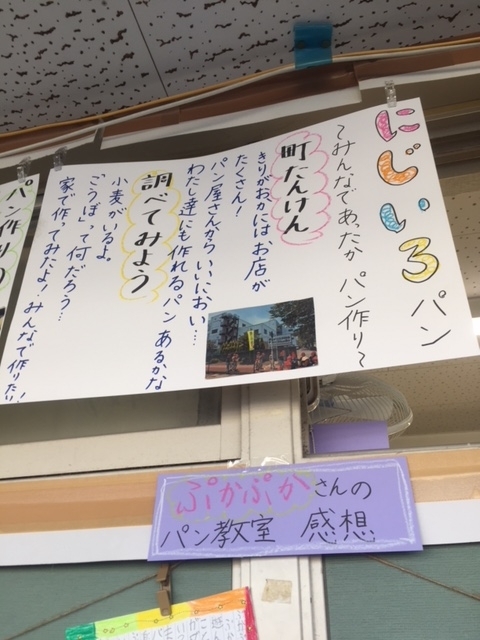 にじいろパン
～みんなであったか パン作り～
町たんけん
きりがおかにはお店が
たくさん！
パン屋さんからいいにおい…
わたし達にも作れるパンあるかな
調べてみよう
小麦がいるよ
「こうぼ」って何だろう…
家で作ってみたよ！みんなで作りたい！
パン作り
ぷかぷかさんの
パン教室 感想